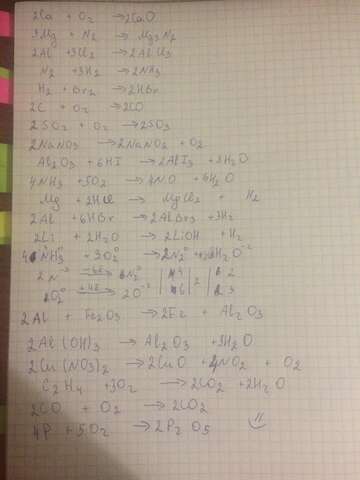 2Ca + O2 → 2CaO
3Mg + N2 → Mg3N2
2Al + 3Cl2 → 2AlCl3
N2 + 3H2 → 2NH3
H2 + Br2 → 2HBr
2C + O2 → 2CO
2SO2 + O2 → 2SO3
2NaNO3 → 2NaNO2 + O2
Al2O3 + 6HI → 2AlI3 + 3H2O
4NH3 + 5O2 → 4NO + 6H2O
Mg + 2HCl → MgCl2 + H2
2Al + 6HBr → 2AlBr3 + 3H2
2Li + 2H2O → 2LiOH + H2
4NH3 + 3O2⁰ → 2N2⁰ + 6H2O⁻²
2N⁻³ −6e → N2⁰
O2⁰ +4e → 2O⁻²
2Al + Fe2O3 → 2Fe + Al2O3
2Al(OH)3 → Al2O3 + 3H2O
2Cu(NO3)2 → 2CuO + 4NO2 + O2
C2H4 + 3O2 → 2CO2 + 2H2O
2CO + O2 → 2CO2
4P + 5O2 → 2P2O5